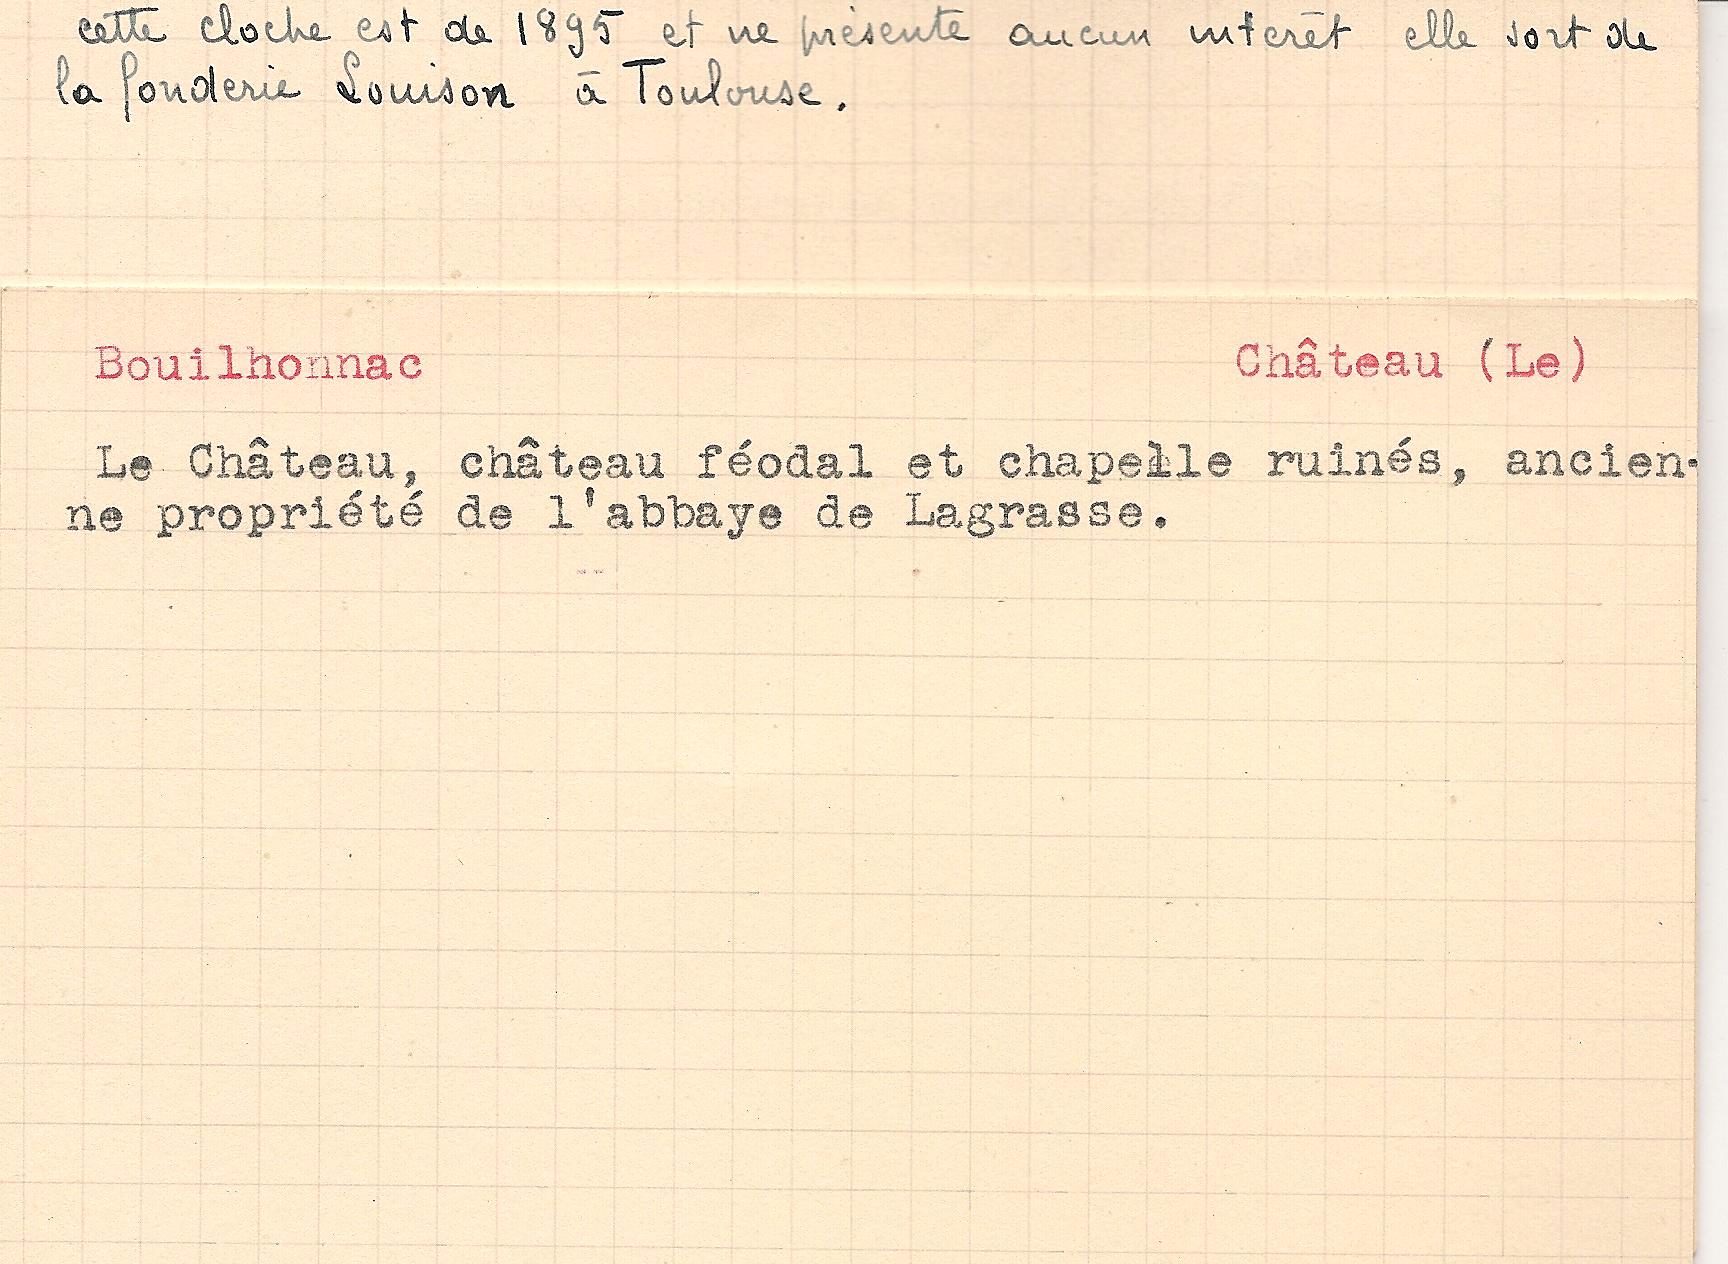 cette cloche est de 1895 et ne présente aucun intérêt elle sort de
la fonderie Louison à Toulouse.
Bouilhonnac Château (Le)
Le Château, château féodal et chapelle ruinés, ancien-
ne propriété de l'abbaye de Lagrasse.